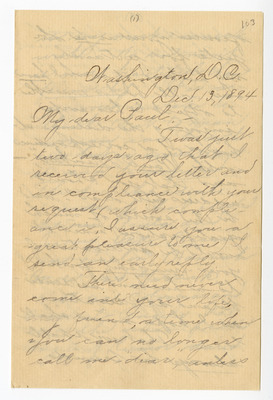 (1)
103
Washington, D.C.
Dec. 13, 1894
My dear Paul:-
'Twas just
two days ago that I
received your letter and
in compliance with your
request, (which compli-
ance, I assure you a
great pleasure to me) I
send an early reply.
There need never
come into your life,
a friend, a time when
you can no longer
call me dear, unless